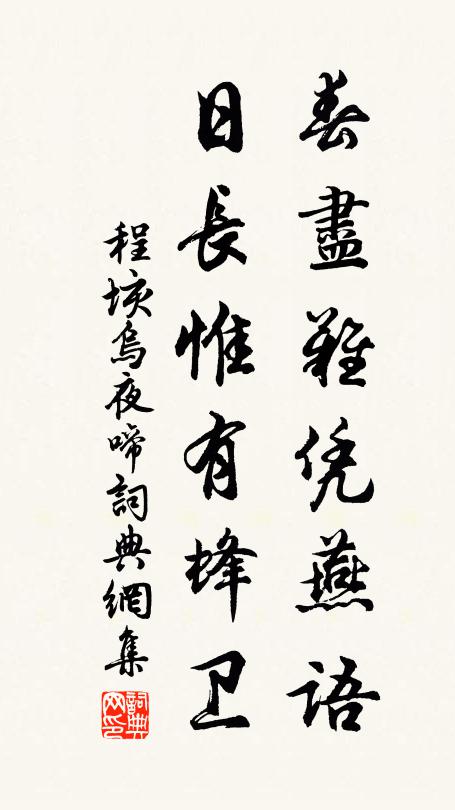 春盡難凭燕語
日長惟有蜂卫
程垓烏夜啼詞典網集
詞典网印